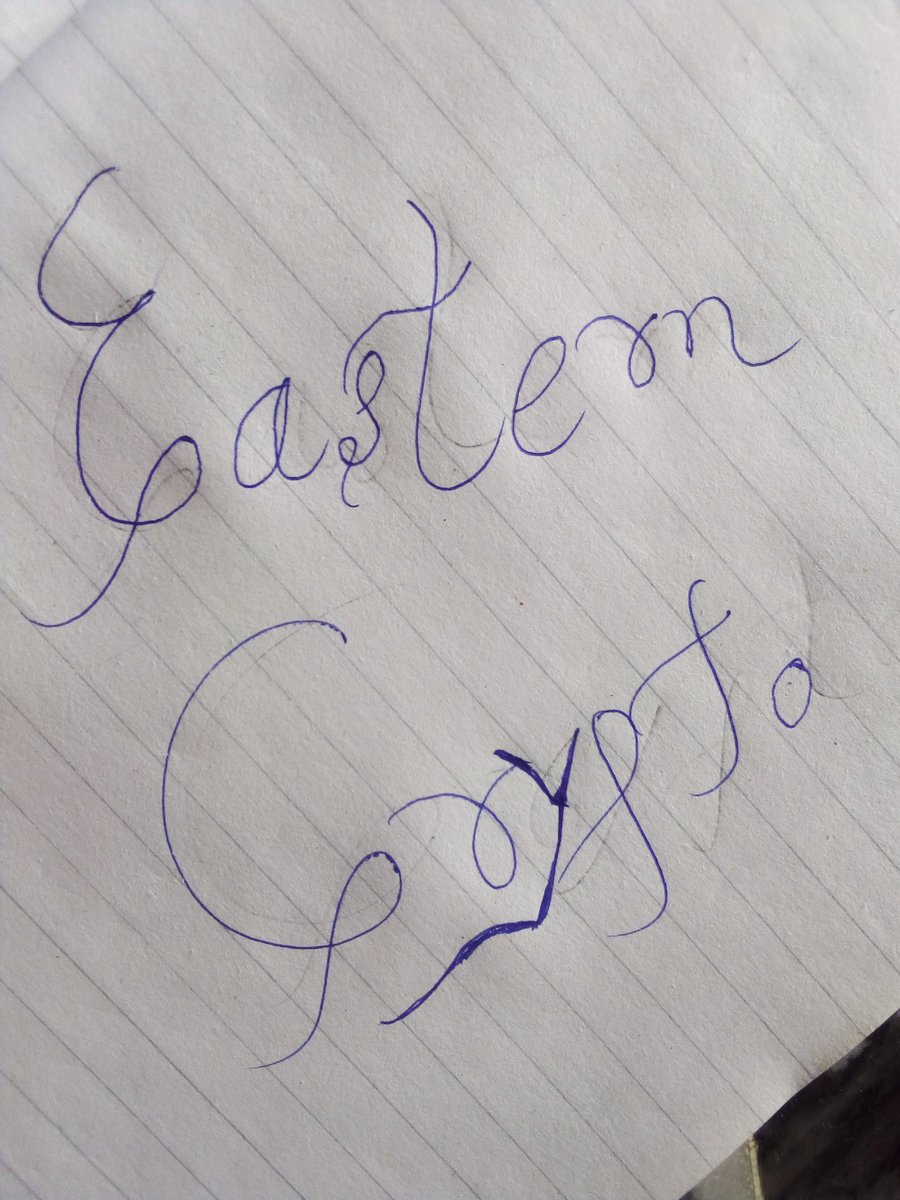 Eastern
Crypto